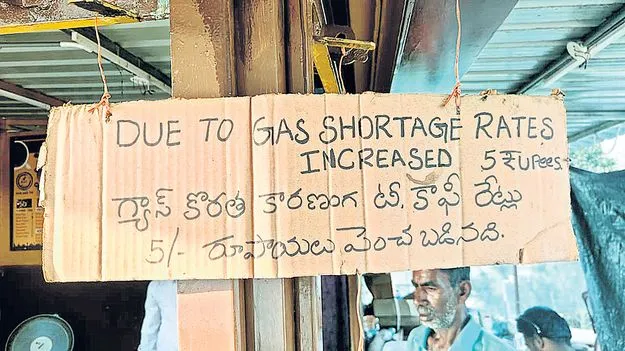 DUE TO GAS SHORTAGE RATES
INCREASED 5 ₹UPees.
గ్యాస్ కొరత కారణంగ టీ. కాఫీ రేట్లు
5/- రూపాయలు పెంచ బడినది.